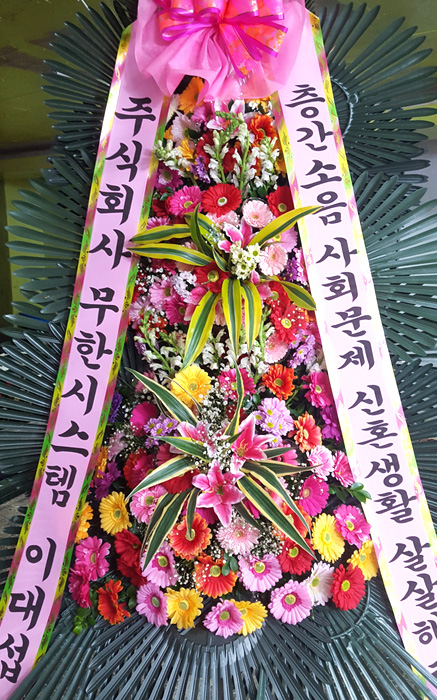 주식회사 무한시스템 이대섭
층간소음 사회문제 신혼생활 살살해